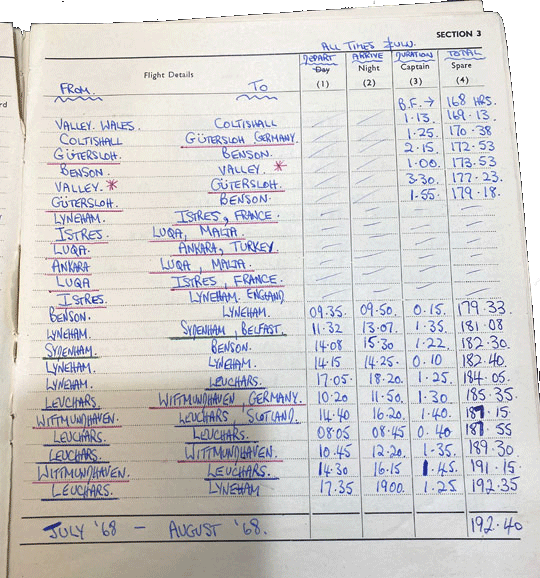 SECTION 3
ALL TIMES ZULU.
DEPART ARRIVE DURATION TOTAL
Flight Details Day Night Captain Spare
FROM. TO (1) (2) (3) (4)
B.F. → 168 HRS.
VALLEY. WALES. COLTISHALL 1.13. 169.13.
COLTISHALL GÜTERSLOH. GERMANY. 1.25. 170.38
GÜTERSLOH. BENSON. 2.15. 172.53
BENSON. VALLEY. * 1.00. 173.53
VALLEY. * GÜTERSLOH. 3.30. 177.23.
GÜTERSLOH. BENSON. 1.55. 179.18.
LYNEHAM. ISTRES, FRANCE.
ISTRES. LUQA, MALTA.
LUQA. ANKARA, TURKEY.
ANKARA LUQA, MALTA.
LUQA ISTRES, FRANCE.
ISTRES. LYNEHAM. ENGLAND
BENSON. LYNEHAM. 09.35. 09.50. 0.15. 179.33.
LYNEHAM. SYDENHAM, BELFAST. 11.32 13.07. 1.35. 181.08
SYDENHAM. BENSON. 14.08 15.30 1.22. 182.30.
LYNEHAM. LYNEHAM. 14.15 14.25. 0.10 182.40.
LYNEHAM. LEUCHARS. 17.05. 18.20. 1.25. 184.05.
LEUCHARS. WITTMUNDHAVEN, GERMANY. 10.20 11.50. 1.30. 185.35.
WITTMUNDHAVEN. LEUCHARS, SCOTLAND. 14.40 16.20. 1.40. 187.15.
LEUCHARS. LEUCHARS. 08.05 08.45 0.40 187.55
LEUCHARS. WITTMUNDHAVEN. 10.45 12.20. 1.35. 189.30
WITTMUNDHAVEN. LEUCHARS. 14.30 16.15 1.45. 191.15.
LEUCHARS. LYNEHAM 17.35 1900. 1.25 192.35
JULY '68 — AUGUST '68. 192.40